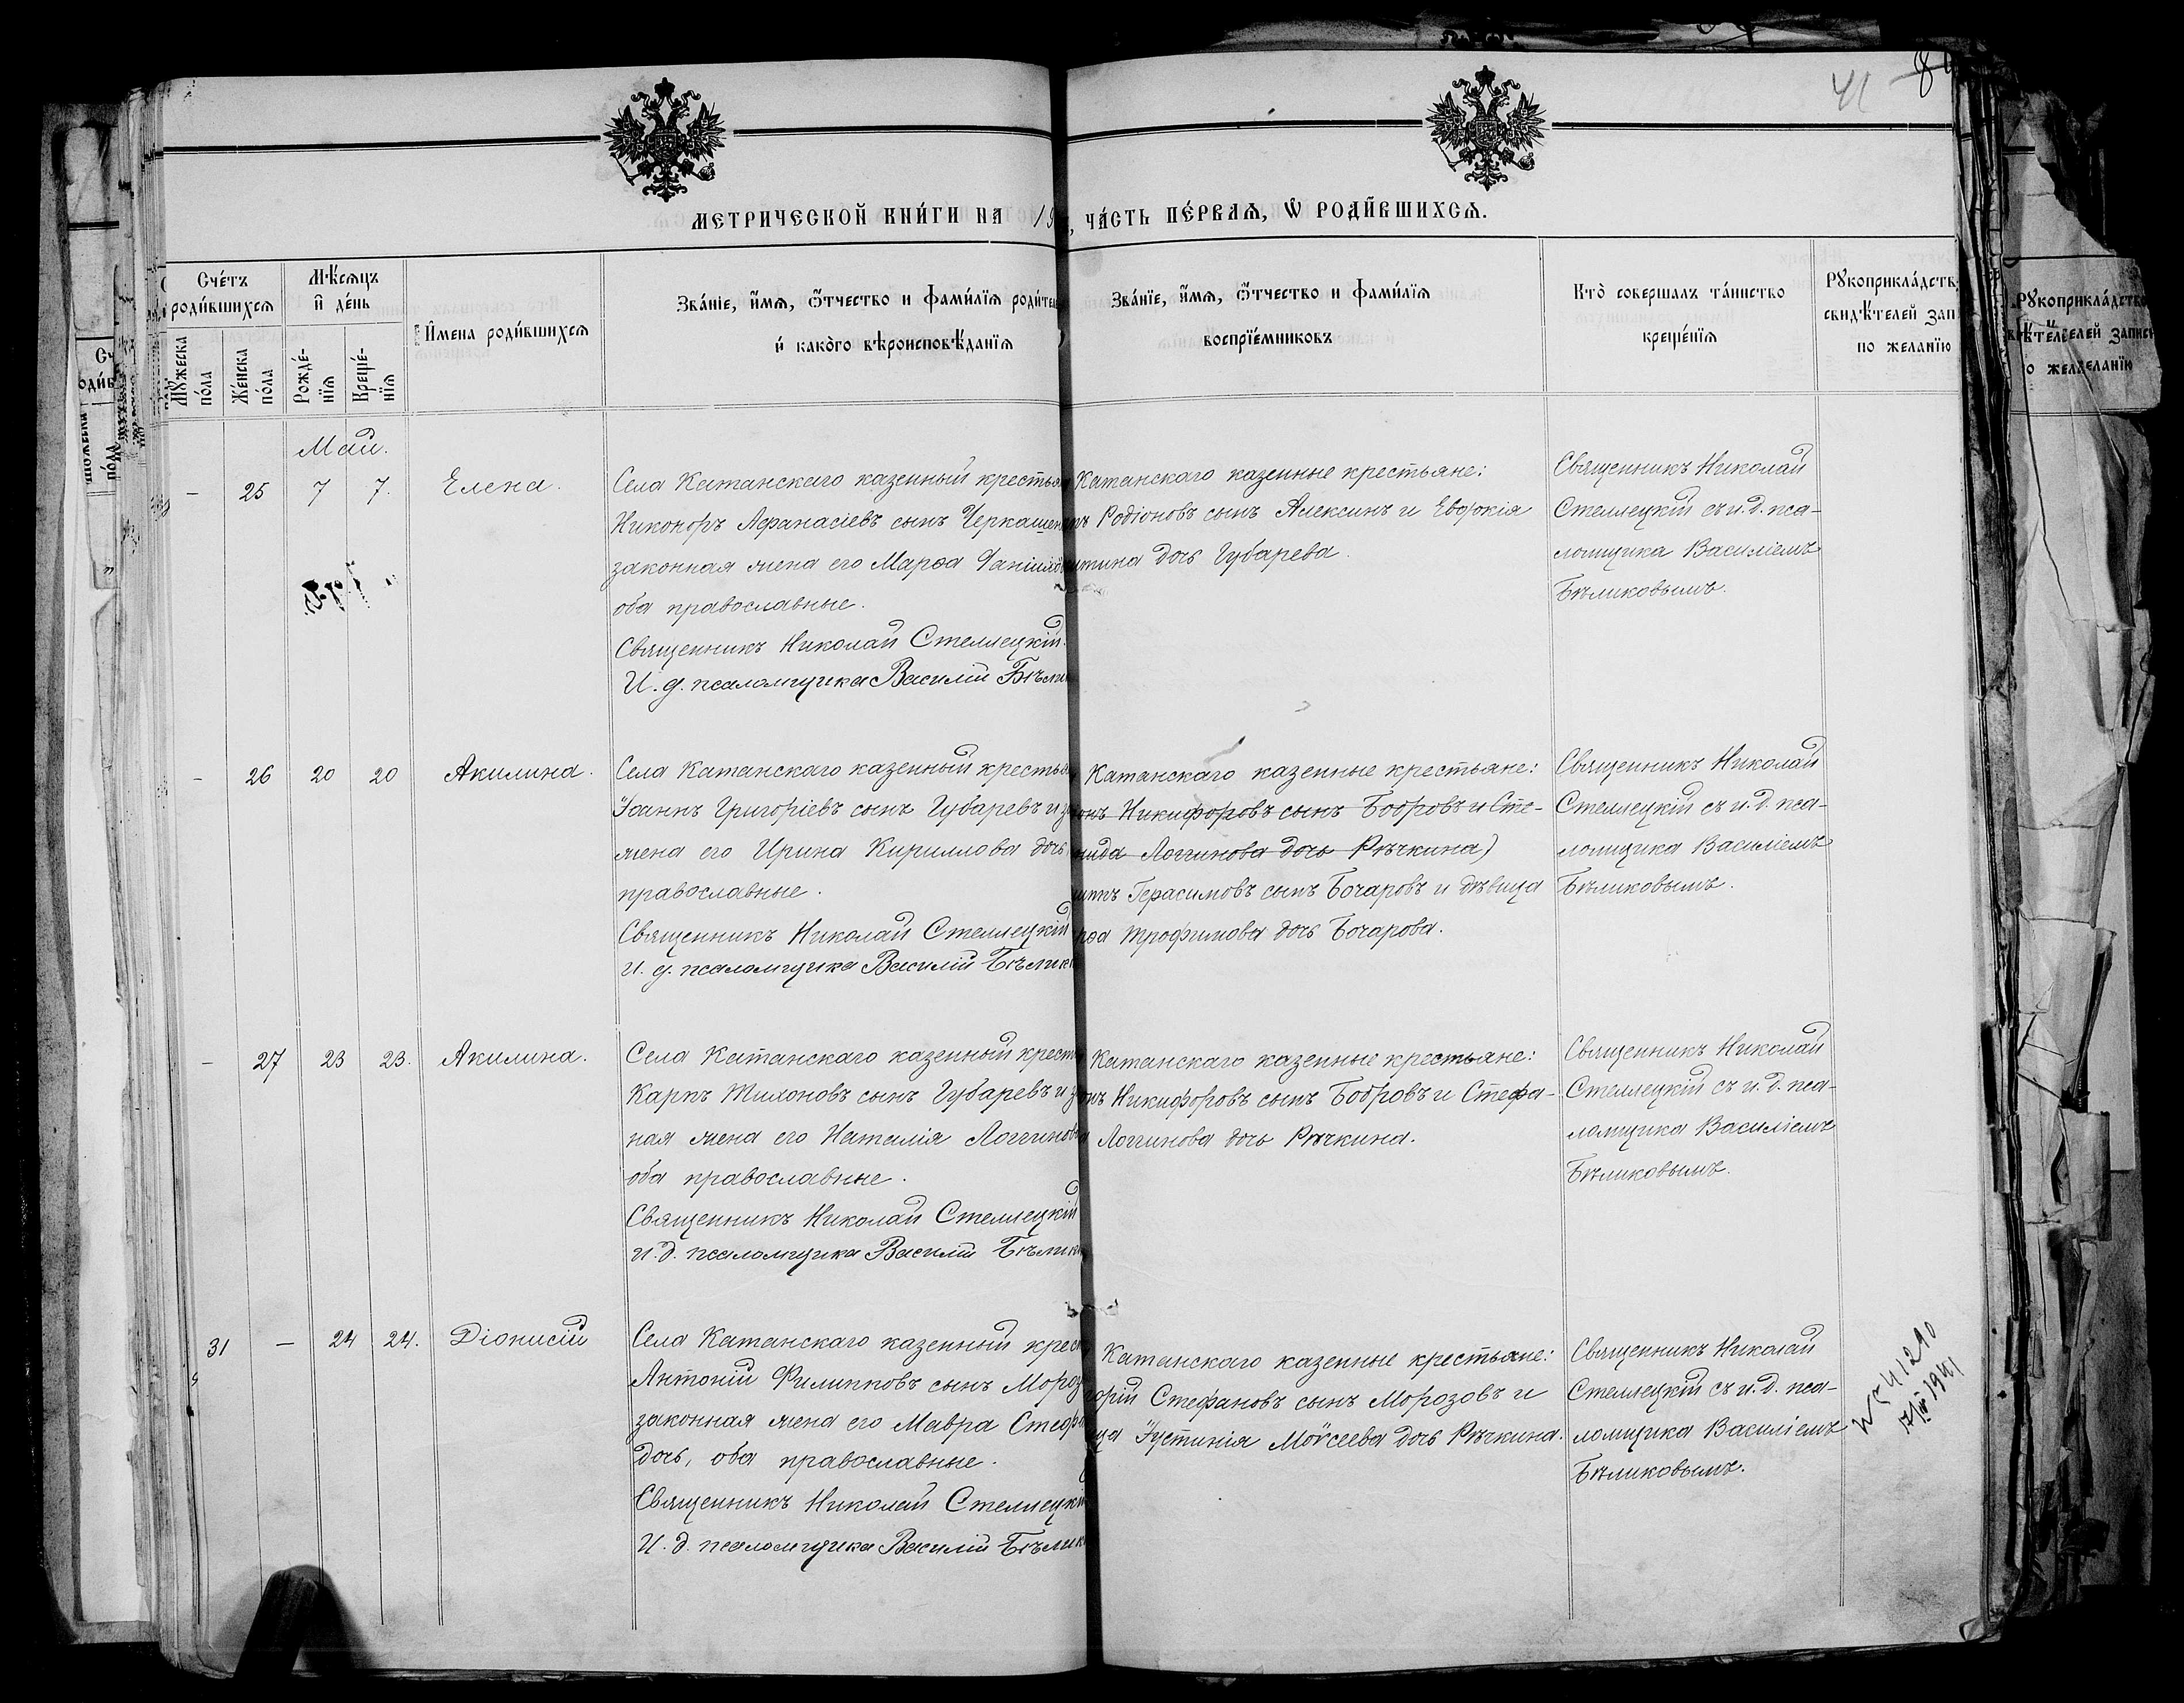 41
МЕТРИЧЕСКОЙ КНИ́ГИ НА 19
, ЧА́СТЬ ПЕ́РВАѦ, Ѡ҆ РОДИ́ВШИХСѦ.
Сче́тъ роди́вшихсѧ
Мѣ́сѧцъ и҆ де́нь
И҆мена роди́вшихсѧ
Зва́нїе, и҆́мѧ, ѻ҆́тчество и фами́лїѧ роди́те
и҆ како́го вѣроисповѣ́данїѧ
Зва́нїе, и҆́мѧ, ѻ҆́тчество и фами́лїѧ
воспрїе́мниковъ
Кто̀ совершалъ та́инство
креще́нїѧ
Рꙋкоприкла́дств
свидѣ́телей зап
по желанїю
Мꙋжеска по́ла
Же́нска по́ла
Рожде́-нїѧ
Креще́-нїѧ
Май.
- 25 7 7. Елена.
Села Катанскаго казенный крестья
Никоноръ Афанасіевъ сынъ Черкашен
законная жена его Марѳа Даніило
оба православные.
Священникъ Николай Стеллецкій.
И. д. псаломщика Василій Бѣли
Катанскаго казенные крестьяне:
Родіоновъ сынъ Алексинъ и Евдокія
дочь Губарева.
Священникъ Николай
Стеллецкій съ и. д. пса-
ломщика Василіемъ
Бѣликовымъ.
- 26 20 20 Акилина.
Села Катанскаго казенный крестья
Іоаннъ Григоріевъ сынъ Губаревъ и з
жена его Ирина Кириллова дочь
православные.
Священникъ Николай Стеллецкій
И. д. псаломщика Василій Бѣлик
Катанскаго казенные крестьяне:
онъ Никифоровъ сынъ Бобровъ и Сте-
нида Логгинова дочь Рѣчкина)
Герасимовъ сынъ Бочаровъ и дѣвица
рѳа Трофимова дочь Бочарова.
Священникъ Николай
Стеллецкій съ и. д. пса-
ломщика Василіемъ
Бѣликовымъ.
- 27 23 23. Акилина.
Села Катанскаго казенный крест
Карпъ Тихоновъ сынъ Губаревъ и з
ная жена его Наталія Логгинова
оба православные.
Священникъ Николай Стеллецкій
И. д. псаломщика Василій Бѣлик
Катанскаго казенные крестьяне:
онъ Никифоровъ сынъ Бобровъ и Стефа-
Логгинова дочь Рѣчкина.
Священникъ Николай
Стеллецкій съ и. д. пса-
ломщика Василіемъ
Бѣликовымъ.
31 - 24 24. Діонисій
Села Катанскаго казенный крес
Антоній Филипповъ сынъ Мороз
законная жена его Мавра Стеф
дочь, оба православные.
Священникъ Николай Стеллецкі
И. д. псаломщика Василій Бѣлик
Катанскаго казенные крестьяне:
орій Стефановъ сынъ Морозовъ и
ца Іустинія Моѵсеева дочь Рѣчкина.
Священникъ Николай
Стеллецкій съ и. д. пса-
ломщика Василіемъ
Бѣликовымъ.